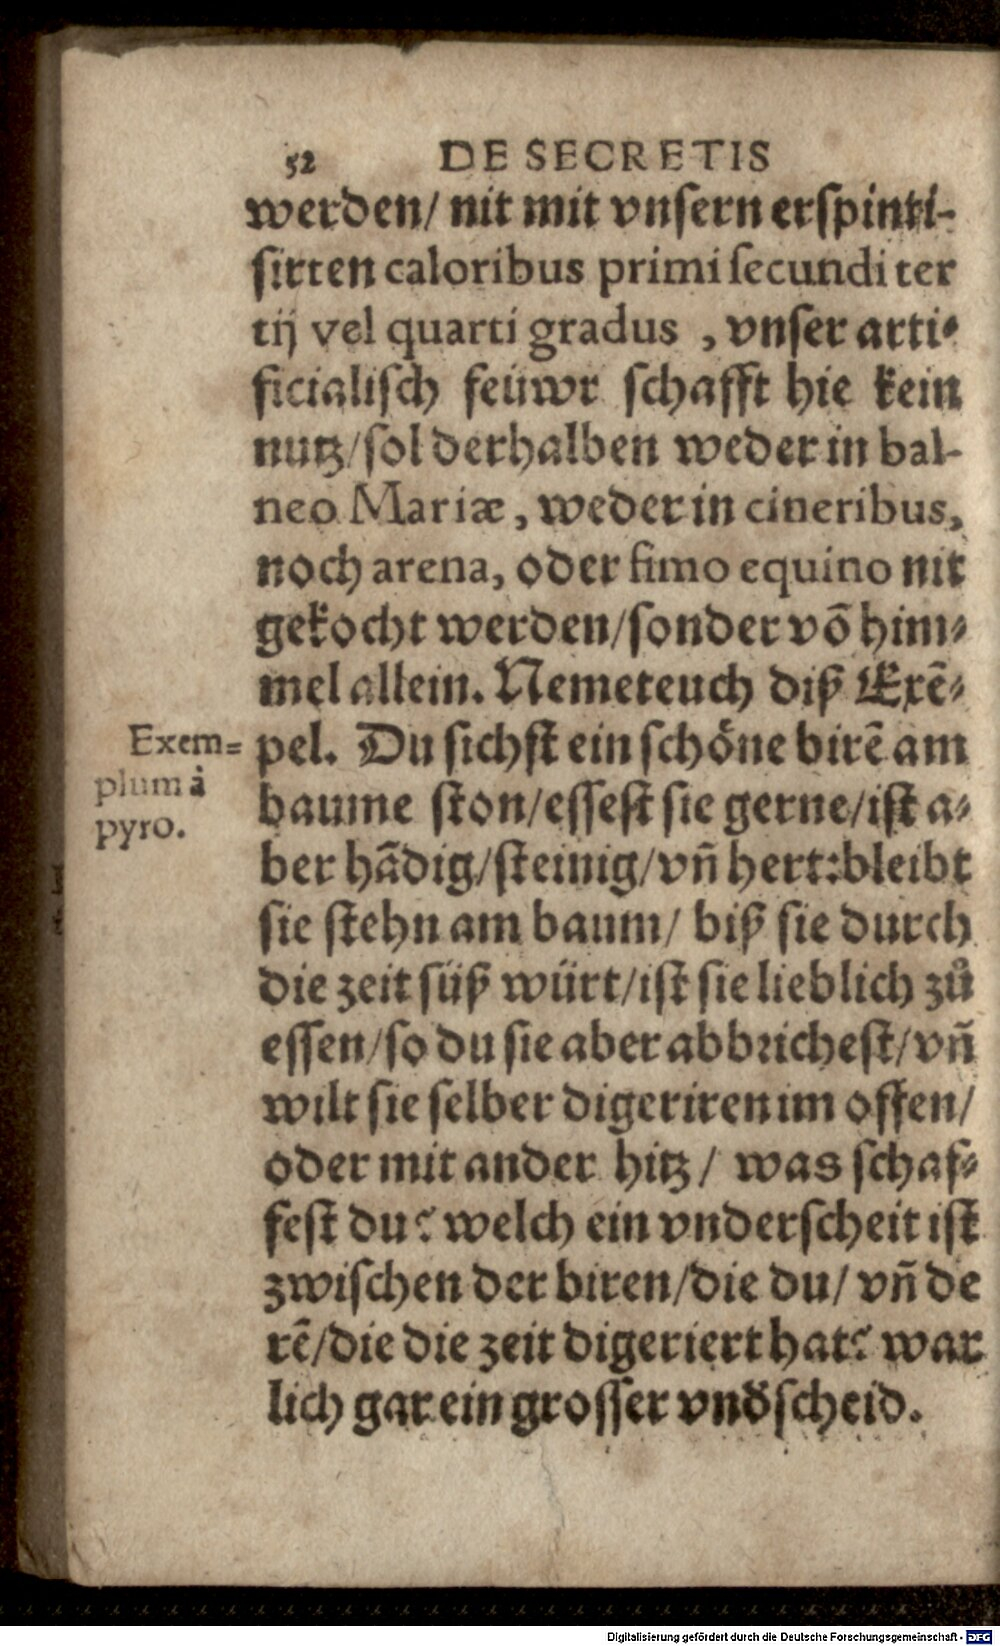 52 DE SECRETIS
werden/ nit mit vnsern erspinti-
sirten caloribus primi secundi ter
tij vel quarti gradus , vnser arti⸗
ficialisch feüwr schafft hie kein
nutz/sol derhalben weder in bal-
neo Mariæ, weder in cineribus,
noch arena, oder fimo equino nit
gekocht werden/sonder võ him⸗
mel allein. Nemet euch diß Exẽ⸗
Exem=
plum à
pyro.
pel. Du sichst ein schöne birẽ am
baume ston/essest sie gerne/ist a⸗
ber hãdig/steinig/vñ hert:bleibt
sie stehn am baum/ biß sie durch
die zeit süß würt/ist sie lieblich zů
essen/so du sie aber abbrichest/vñ
wilt sie selber digeriren im offen/
oder mit ander hitz/ was schaf⸗
fest du? welch ein vnderscheit ist
zwischen der biren/die du/ vñ de
rẽ/die die zeit digeriert hat? war
lich gar ein grosser vnd̃scheid.
Digitalisierung gefördert durch die Deutsche Forschungsgemeinschaft - DFG